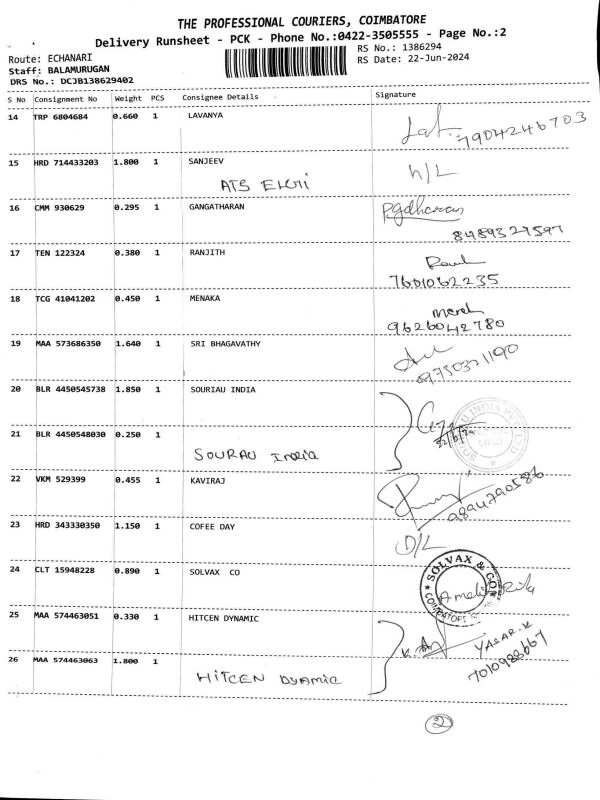 THE PROFESSIONAL COURIERS, COIMBATORE
Delivery Runsheet - PCK - Phone No.:0422-3505555 - Page No.:2
Route: ECHANARI
RS No.: 1386294
Staff: BALAMURUGAN
RS Date: 22-Jun-2024
DRS No.: DCJB138629402
S No Consignment No Weight PCS Consignee Details Signature
14 TRP 6804684 0.660 1 LAVANYA
7904246703
15 HRD 714433203 1.800 1 SANJEEV
ATS
16 CMM 930629 0.295 1 GANGATHARAN
Pgdharan
8489329597
17 TEN 122324 0.380 1 RANJITH
7601062235
18 TCG 41041202 0.450 1 MENAKA
9626042780
19 MAA 573686350 1.640 1 SRI BHAGAVATHY
9750321190
20 BLR 4450545738 1.850 1 SOURIAU INDIA
21 BLR 4450548030 0.250 1
SOURAU India
22 VKM 529399 0.455 1 KAVIRAJ
9894790586
23 HRD 343330350 1.150 1 COFEE DAY
D/L
24 CLT 15948228 0.890 1 SOLVAX CO
SOLVAX & CO
COIMBATORE
25 MAA 574463051 0.330 1 HITCEN DYNAMIC
YASAR.K
7010988667
26 MAA 574463063 1.800 1
HITCEN DYAMIC
2